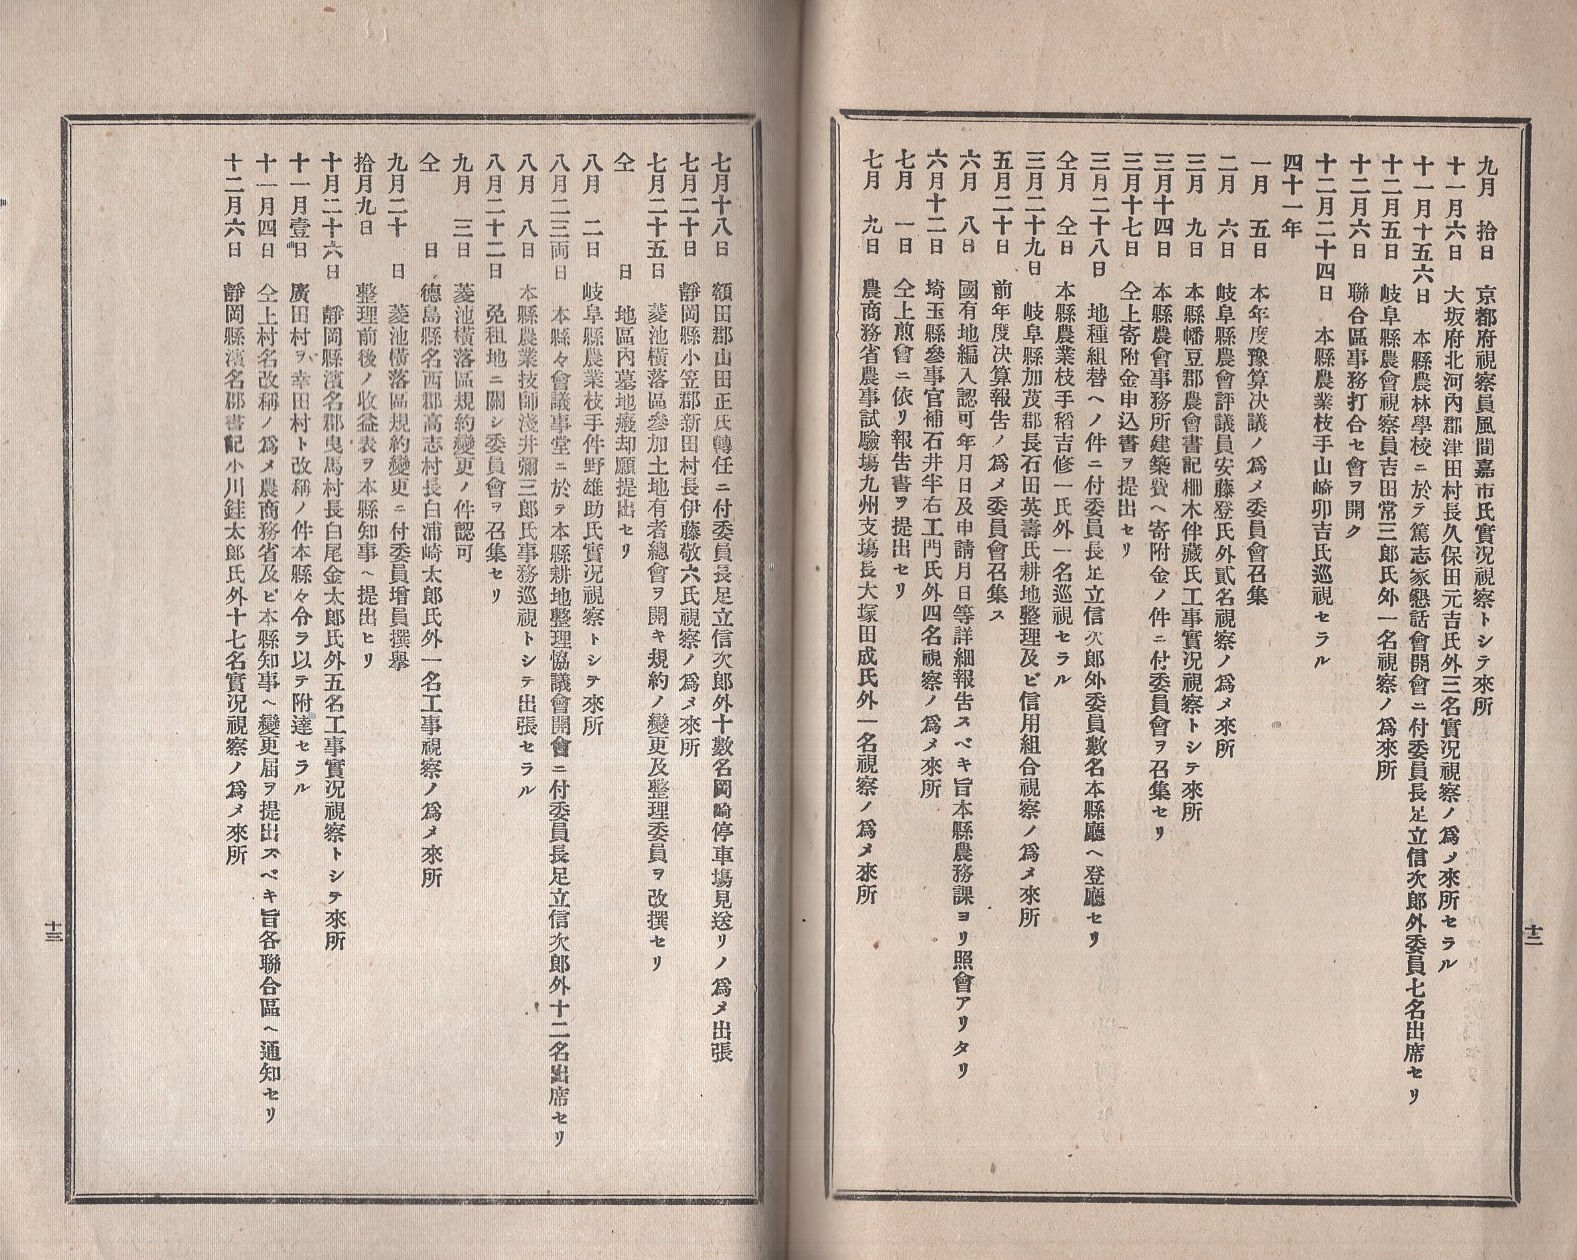 九月　拾日　京都府視察員風間嘉市氏實況視察トシテ來所
十一月六日　大坂府北河內郡津田村長久保田元吉氏外三名實況視察ノ爲メ來所セラル
十一月十五六日　本縣農林學校ニ於テ篤志家懇話會開會ニ付委員長足立信次郎外委員七名出席セリ
十二月五日　岐阜縣農會視察員吉田常三郎氏外一名視察ノ爲來所
十二月六日　聯合區事務打合セ會ヲ開ク
十二月二十四日　本縣農業枝手山崎卯吉氏巡視セラル
四十一年
一月　五日　本年度豫算決議ノ爲メ委員會召集
二月　六日　岐阜縣農會評議員安藤登氏外貳名視察ノ爲メ來所
三月　九日　本縣幡豆郡農會書記柵木伴藏氏工事實況視察トシテ來所
三月十四日　本縣農會事務所建築費ヘ寄附金ノ件ニ付委員會ヲ召集セリ
三月十七日　仝上寄附金申込書ヲ提出セリ
三月二十八日　地種組替ヘノ件ニ付委員長足立信次郎外委員數名本縣廳ヘ登廳セリ
仝月　仝日　本縣農業枝手稻吉修一氏外一名巡視セラル
三月二十九日　岐阜縣加茂郡長石田英壽氏耕地整理及ビ信用組合視察ノ爲メ來所
五月二十日　前年度決算報告ノ爲メ委員會召集ス
六月　八日　國有地編入認可年月日及申請月日等詳細報告スベキ旨本縣農務課ヨリ照會アリタリ
六月十二日　埼玉縣參事官補石井牛右工門氏外四名視察ノ爲メ來所
七月　一日　仝上照會ニ依リ報告書ヲ提出セリ
七月　九日　農商務省農事試驗塲九州支塲長大塚田成氏外一名視察ノ爲メ來所
十二
七月十八日　額田郡山田正氏轉任ニ付委員長足立信次郎外十數名岡崎停車塲見送リノ爲メ出張
七月二十日　靜岡縣小笠郡新田村長伊藤敬六氏視察ノ爲メ來所
七月二十五日　菱池橫落區參加土地有者總會ヲ開キ規約ノ變更及整理委員ヲ改撰セリ
仝　日　地區內墓地癈却願提出セリ
八月　二日　岐阜縣農業枝手件野雄助氏實況視察トシテ來所
八月二三兩日　本縣々會議事堂ニ於テ本縣耕地整理協議會開會ニ付委員長足立信次郎外十二名出席セリ
八月　八日　本縣農業技師淺井彌三郎氏事務巡視トシテ出張セラル
八月二十二日　免租地ニ關シ委員會ヲ召集セリ
九月　三日　菱池橫落區規約變更ノ件認可
仝　日　德島縣名西郡高志村長白浦崎太郎氏外一名工事視察ノ爲メ來所
九月二十　日　菱池橫落區規約變更ニ付委員增員撰擧
拾月九日　整理前後ノ收益表ヲ本縣知事ヘ提出セリ
十月二十六日　靜岡縣濱名郡曳馬村長白尾金太郎氏外五名工事實況視察トシテ來所
十一月壹日　廣田村ヲバ幸田村ト改稱ノ件本縣々令ヲ以テ附達セラル
十一月四日　仝上村名改稱ノ爲メ農商務省及ビ本縣知事ヘ變更届ヲ提出スベキ旨各聯合區ヘ通知セリ
十二月六日　靜岡縣濱名郡書記小川銈太郎氏外十七名實況視察ノ爲メ來所
十三